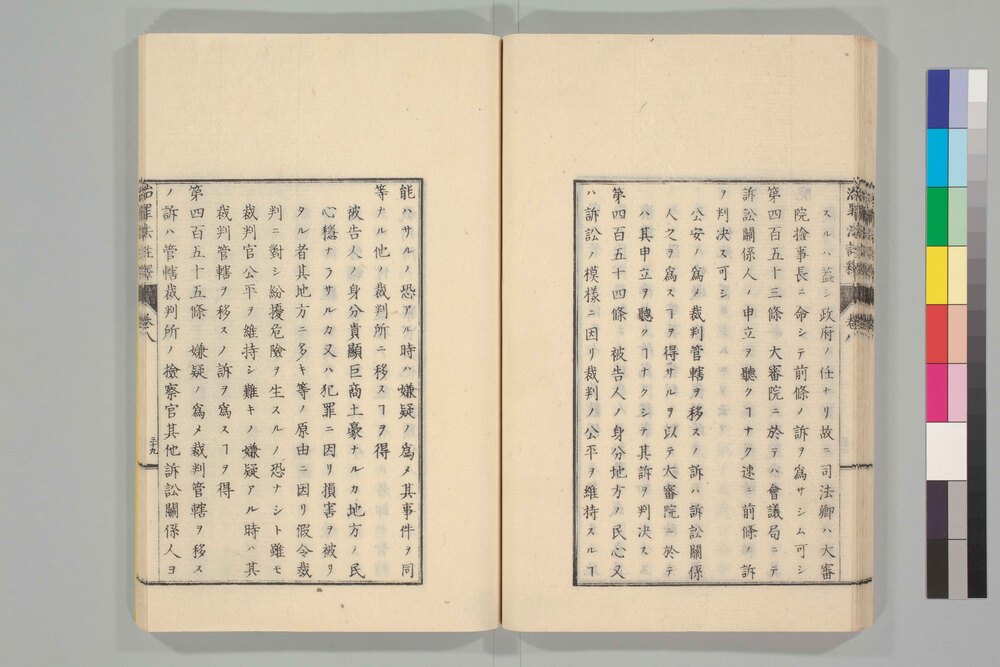 スルハ蓋シ政府ノ任ナリ故ニ司法卿ハ大審
院撿事長ニ命シテ前條ノ訴ヲ爲サシム可シ
第四百五十三條 大審院ニ於テハ會議局ニテ
訴訟關係人ノ申立ヲ聽クヿナク速ニ前條ノ訴
ヲ判决ス可シ
公安ノ爲メ裁判管轄ヲ移スノ訴ハ訴訟關係
人之ヲ爲スヿヲ得サルヲ以テ大審院ニ於テ
ハ其申立ヲ聽クヿナクシテ其訴ヲ判决ス
第四百五十四條 被告人ノ身分地方ノ民心又
ハ訴訟ノ模樣ニ因リ裁判ノ公平ヲ維持スルヿ
能ハサルノ恐アル時ハ嫌疑ノ爲メ其事件ヲ同
等ナル他ノ裁判所ニ移スヿヲ得
被告人ノ身分貴顯巨商土豪ナルカ地方ノ民
心穩ナラサルカ又ハ犯罪ニ因リ損害ヲ被リ
タル者其地方ニ多キ等ノ原由ニ因リ假令裁
判ニ對シ紛擾危險ヲ生スルノ恐ナシト雖モ
裁判官公平ヲ維持シ難キノ嫌疑アル時ハ其
裁判管轄ヲ移スノ訴ヲ爲スヿヲ得
第四百五十五條 嫌疑ノ爲メ裁判管轄ヲ移ス
ノ訴ハ管轄裁判所ノ撿察官其他訴訟關係人ヨ
治罪法註釋 卷八
三十九